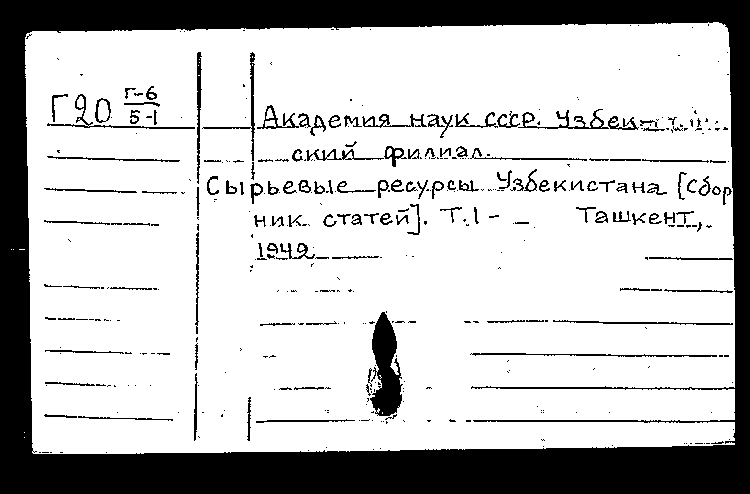 Г20 Г-6
5-1
Академия наук СССР. Узбек-
ский филиал.
Сырьевые ресурсы Узбекистана [Сбор
ник статей]. Т.1 - Ташкент,
1949